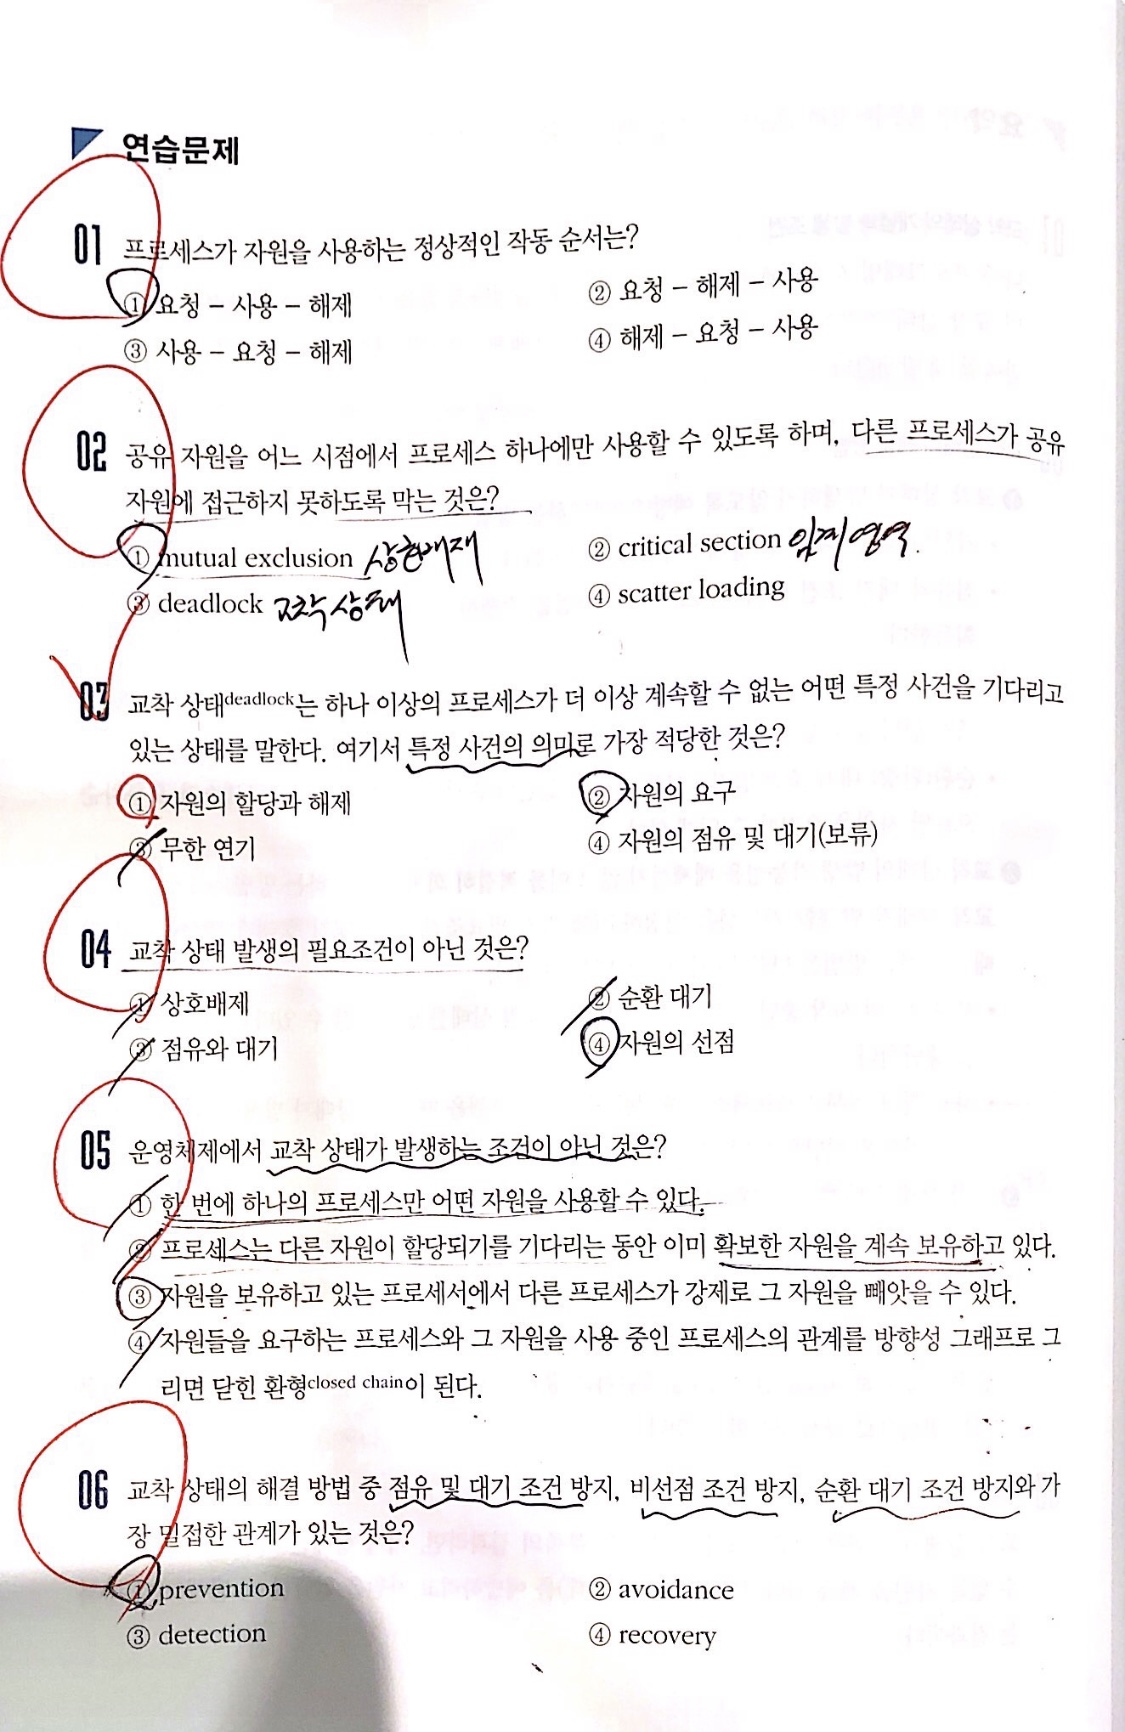 연습문제
01 프로세스가 자원을 사용하는 정상적인 작동 순서는?
① 요청 – 사용 – 해제 ② 요청 – 해제 – 사용
③ 사용 – 요청 – 해제 ④ 해제 – 요청 – 사용
02 공유 자원을 어느 시점에서 프로세스 하나에만 사용할 수 있도록 하며, 다른 프로세스가 공유
자원에 접근하지 못하도록 막는 것은?
① mutual exclusion 상호배제 ② critical section 임계영역.
③ deadlock 교착상태 ④ scatter loading
03 교착 상태deadlock는 하나 이상의 프로세스가 더 이상 계속할 수 없는 어떤 특정 사건을 기다리고
있는 상태를 말한다. 여기서 특정 사건의 의미로 가장 적당한 것은?
① 자원의 할당과 해제 ② 자원의 요구
③ 무한 연기 ④ 자원의 점유 및 대기(보류)
04 교착 상태 발생의 필요조건이 아닌 것은?
① 상호배제 ② 순환 대기
③ 점유와 대기 ④ 자원의 선점
05 운영체제에서 교착 상태가 발생하는 조건이 아닌 것은?
① 한 번에 하나의 프로세스만 어떤 자원을 사용할 수 있다.
② 프로세스는 다른 자원이 할당되기를 기다리는 동안 이미 확보한 자원을 계속 보유하고 있다.
③ 자원을 보유하고 있는 프로세서에서 다른 프로세스가 강제로 그 자원을 빼앗을 수 있다.
④ 자원들을 요구하는 프로세스와 그 자원을 사용 중인 프로세스의 관계를 방향성 그래프로 그
리면 닫힌 환형closed chain이 된다.
06 교착 상태의 해결 방법 중 점유 및 대기 조건 방지, 비선점 조건 방지, 순환 대기 조건 방지와 가
장 밀접한 관계가 있는 것은?
① prevention ② avoidance
③ detection ④ recovery